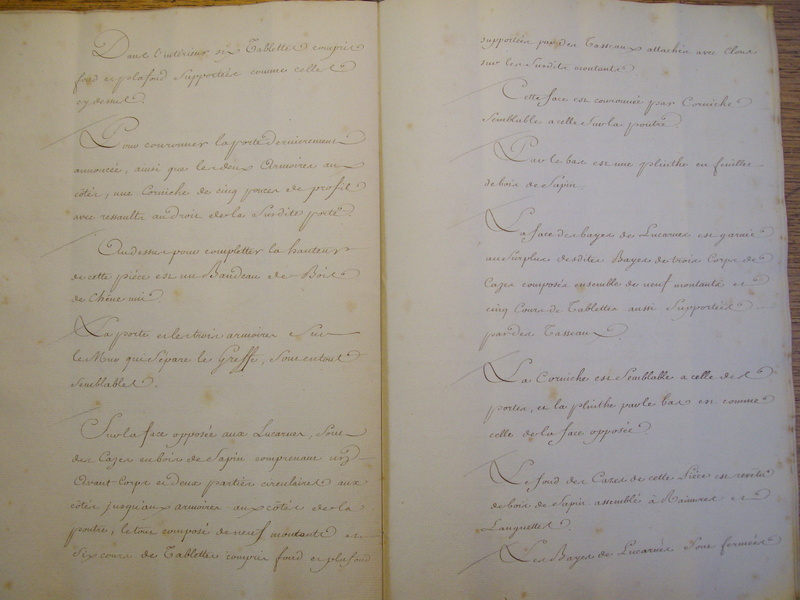 Dans l'interieur six Tablettes compris
fond et plafond Supportées comme celles
cy dessus.
Pour couronner la porte dernierement
annoncée, ainsi que les deux Armoires au
côtés, une Corniche de cinq pouces de profil
avec ressaults au droit de la Susdite porte.
Au dessus pour completter la hauteur
de cette pièce est un Bandeau de Bois
de Chêne uni.
La porte et les trois armoires Sur
le Mur qui Sépare le Greffe, Sont en tout
Semblables.
Sur la face opposée aux Lucarnes, Sont
des Cazes en bois de Sapin comprenant
Avant Corps et deux parties circulaires aux
côtés jusqu'aux armoires aux côtés de la
portes, le tout composé de neuf montants et
Six cours de Tablettes compris fond et plafond
supportées par des Tasseaux attachés avec Cloux
sur les Susdits montants.
Cette face est couronnée par Corniche
Semblable a celle Sur la porte.
Par le bas est une plinthe en feuilles
de bois de Sapin.
La face des bayes des Lucarnes est garnie
au Surplus desdites Bayes de trois Corps de
Cazes composés ensemble de neuf montants et
cinq Cours de Tablettes aussi Supportées
par des Tasseaux.
La Corniche est Semblable a celle des
portes, et la plinthe par le bas est comme
celle de la face opposée.
Le fond des Cazes de cette Pièce est revêtu
de bois de Sapin assemblé à Rainures et
Languettes.
Les Bayes de Lucarnes Sont fermées